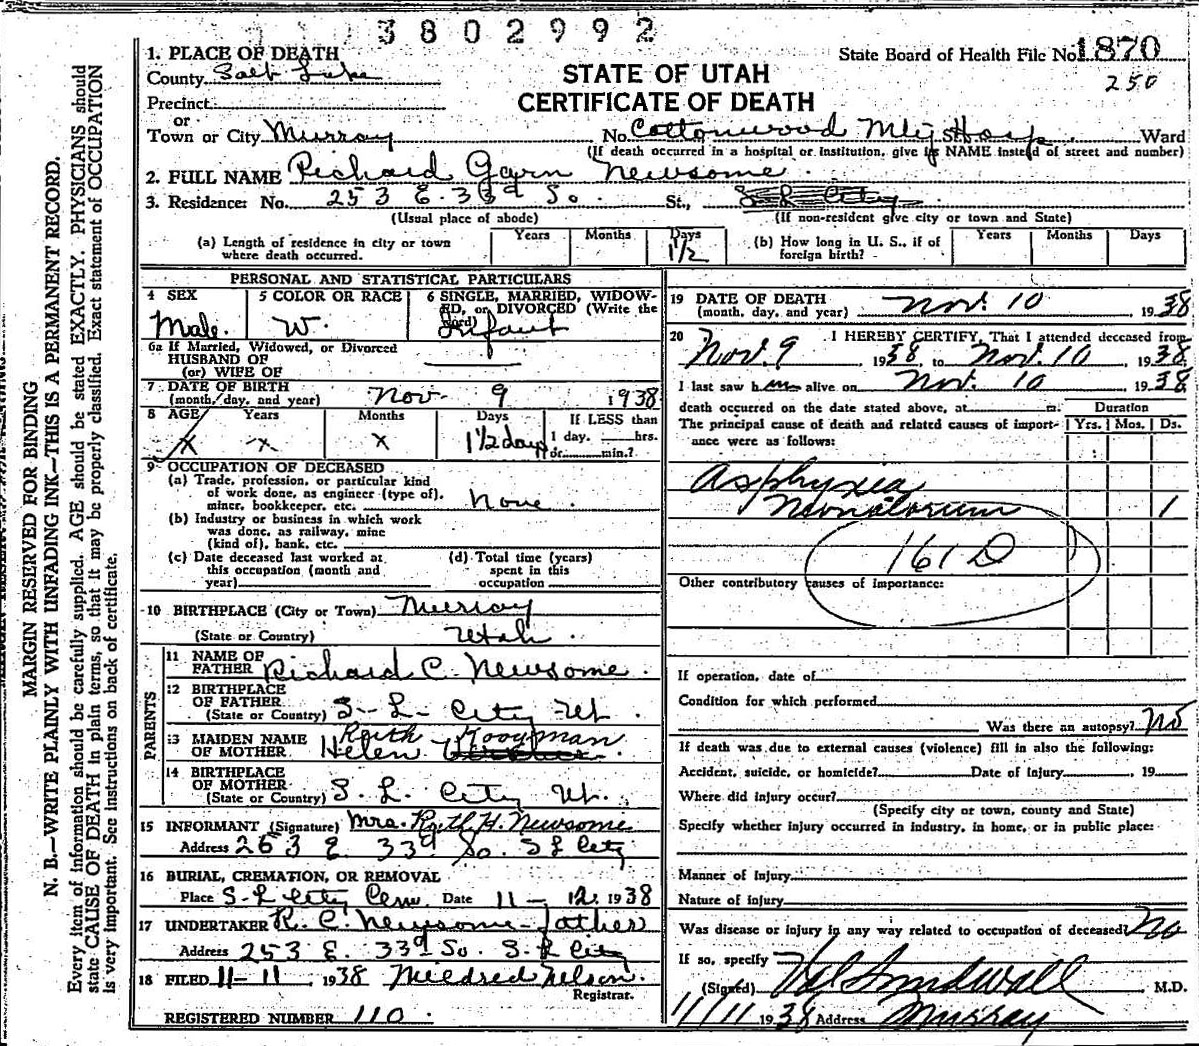 3802992
1. PLACE OF DEATH
State Board of Health File No. 1870
County Salt Lake
STATE OF UTAH
250
Precinct
CERTIFICATE OF DEATH
or
Town or City Murray No. Cottonwood St. Hosp. Ward
(If death occurred in a hospital or institution, give its NAME instead of street and number)
2. FULL NAME Richard Garn Newsome
3. Residence: No. 253 E. 33rd So. St., S L City
(Usual place of abode) (If non-resident give city or town and State)
(a) Length of residence in city or town where death occurred. Years Months Days 1/2 (b) How long in U. S., if of foreign birth? Years Months Days
PERSONAL AND STATISTICAL PARTICULARS
4 SEX 5 COLOR OR RACE 6 SINGLE, MARRIED, WIDOWED, or DIVORCED (Write the word)
Male. W. Infant
6a If Married, Widowed, or Divorced
HUSBAND OF
(or) WIFE OF
7 DATE OF BIRTH
(month, day, and year) Nov. 9 1938
8 AGE Years Months Days If LESS than
X X X 1 1/2 days 1 day, hrs.
or min.?
9 OCCUPATION OF DECEASED
(a) Trade, profession, or particular kind
of work done, as engineer (type of),
miner, bookkeeper, etc. None.
(b) Industry or business in which work
was done, as railway, mine
(kind of), bank, etc.
(c) Date deceased last worked at (d) Total time (years)
this occupation (month and spent in this
year) occupation
10 BIRTHPLACE (City or Town) Murray
(State or Country) Utah.
PARENTS
11 NAME OF
FATHER Richard C. Newsome
12 BIRTHPLACE
OF FATHER
(State or Country) S- L- City Ut.
13 MAIDEN NAME Ruth Kooyman
OF MOTHER Helen
14 BIRTHPLACE
OF MOTHER
(State or Country) S. L. City Ut.
15 INFORMANT (Signature) Mrs. Ruth H. Newsome
Address 263 E. 33rd So. S L City
16 BURIAL, CREMATION, OR REMOVAL
Place S-L City Cem. Date 11- 12, 1938
17 UNDERTAKER R. C. Newsome-father
Address 253 E. 33rd So. S-L City
18 FILED 11-11, 1938 Mildred Nelson.
Registrar.
REGISTERED NUMBER 110.
19 DATE OF DEATH
(month, day, and year) Nov. 10, 1938
20 I HEREBY CERTIFY, That I attended deceased from
Nov. 9 1938 to Nov. 10, 1938
I last saw him alive on Nov. 10 1938
death occurred on the date stated above, at m. Duration
The principal cause of death and related causes of importance were as follows: Yrs. Mos. Ds.
Asphyxia
Neonatorum 1
161 D
Other contributory causes of importance:
If operation, date of
Condition for which performed
Was there an autopsy? No
If death was due to external causes (violence) fill in also the following:
Accident, suicide, or homicide? Date of injury , 19
Where did injury occur?
(Specify city or town, county and State)
Specify whether injury occurred in industry, in home, or in public place:
Manner of Injury
Nature of injury
Was disease or injury in any way related to occupation of deceased? No
If so, specify
(Signed) Val Sundwall M.D.
11/11 1938 Address Murray
MARGIN RESERVED FOR BINDING
N. B.—WRITE PLAINLY WITH UNFADING INK—THIS IS A PERMANENT RECORD.
Every item of information should be carefully supplied. AGE should be stated EXACTLY. PHYSICIANS should
state CAUSE OF DEATH in plain terms, so that it may be properly classified. Exact statement of OCCUPATION
is very important. See instructions on back of certificate.